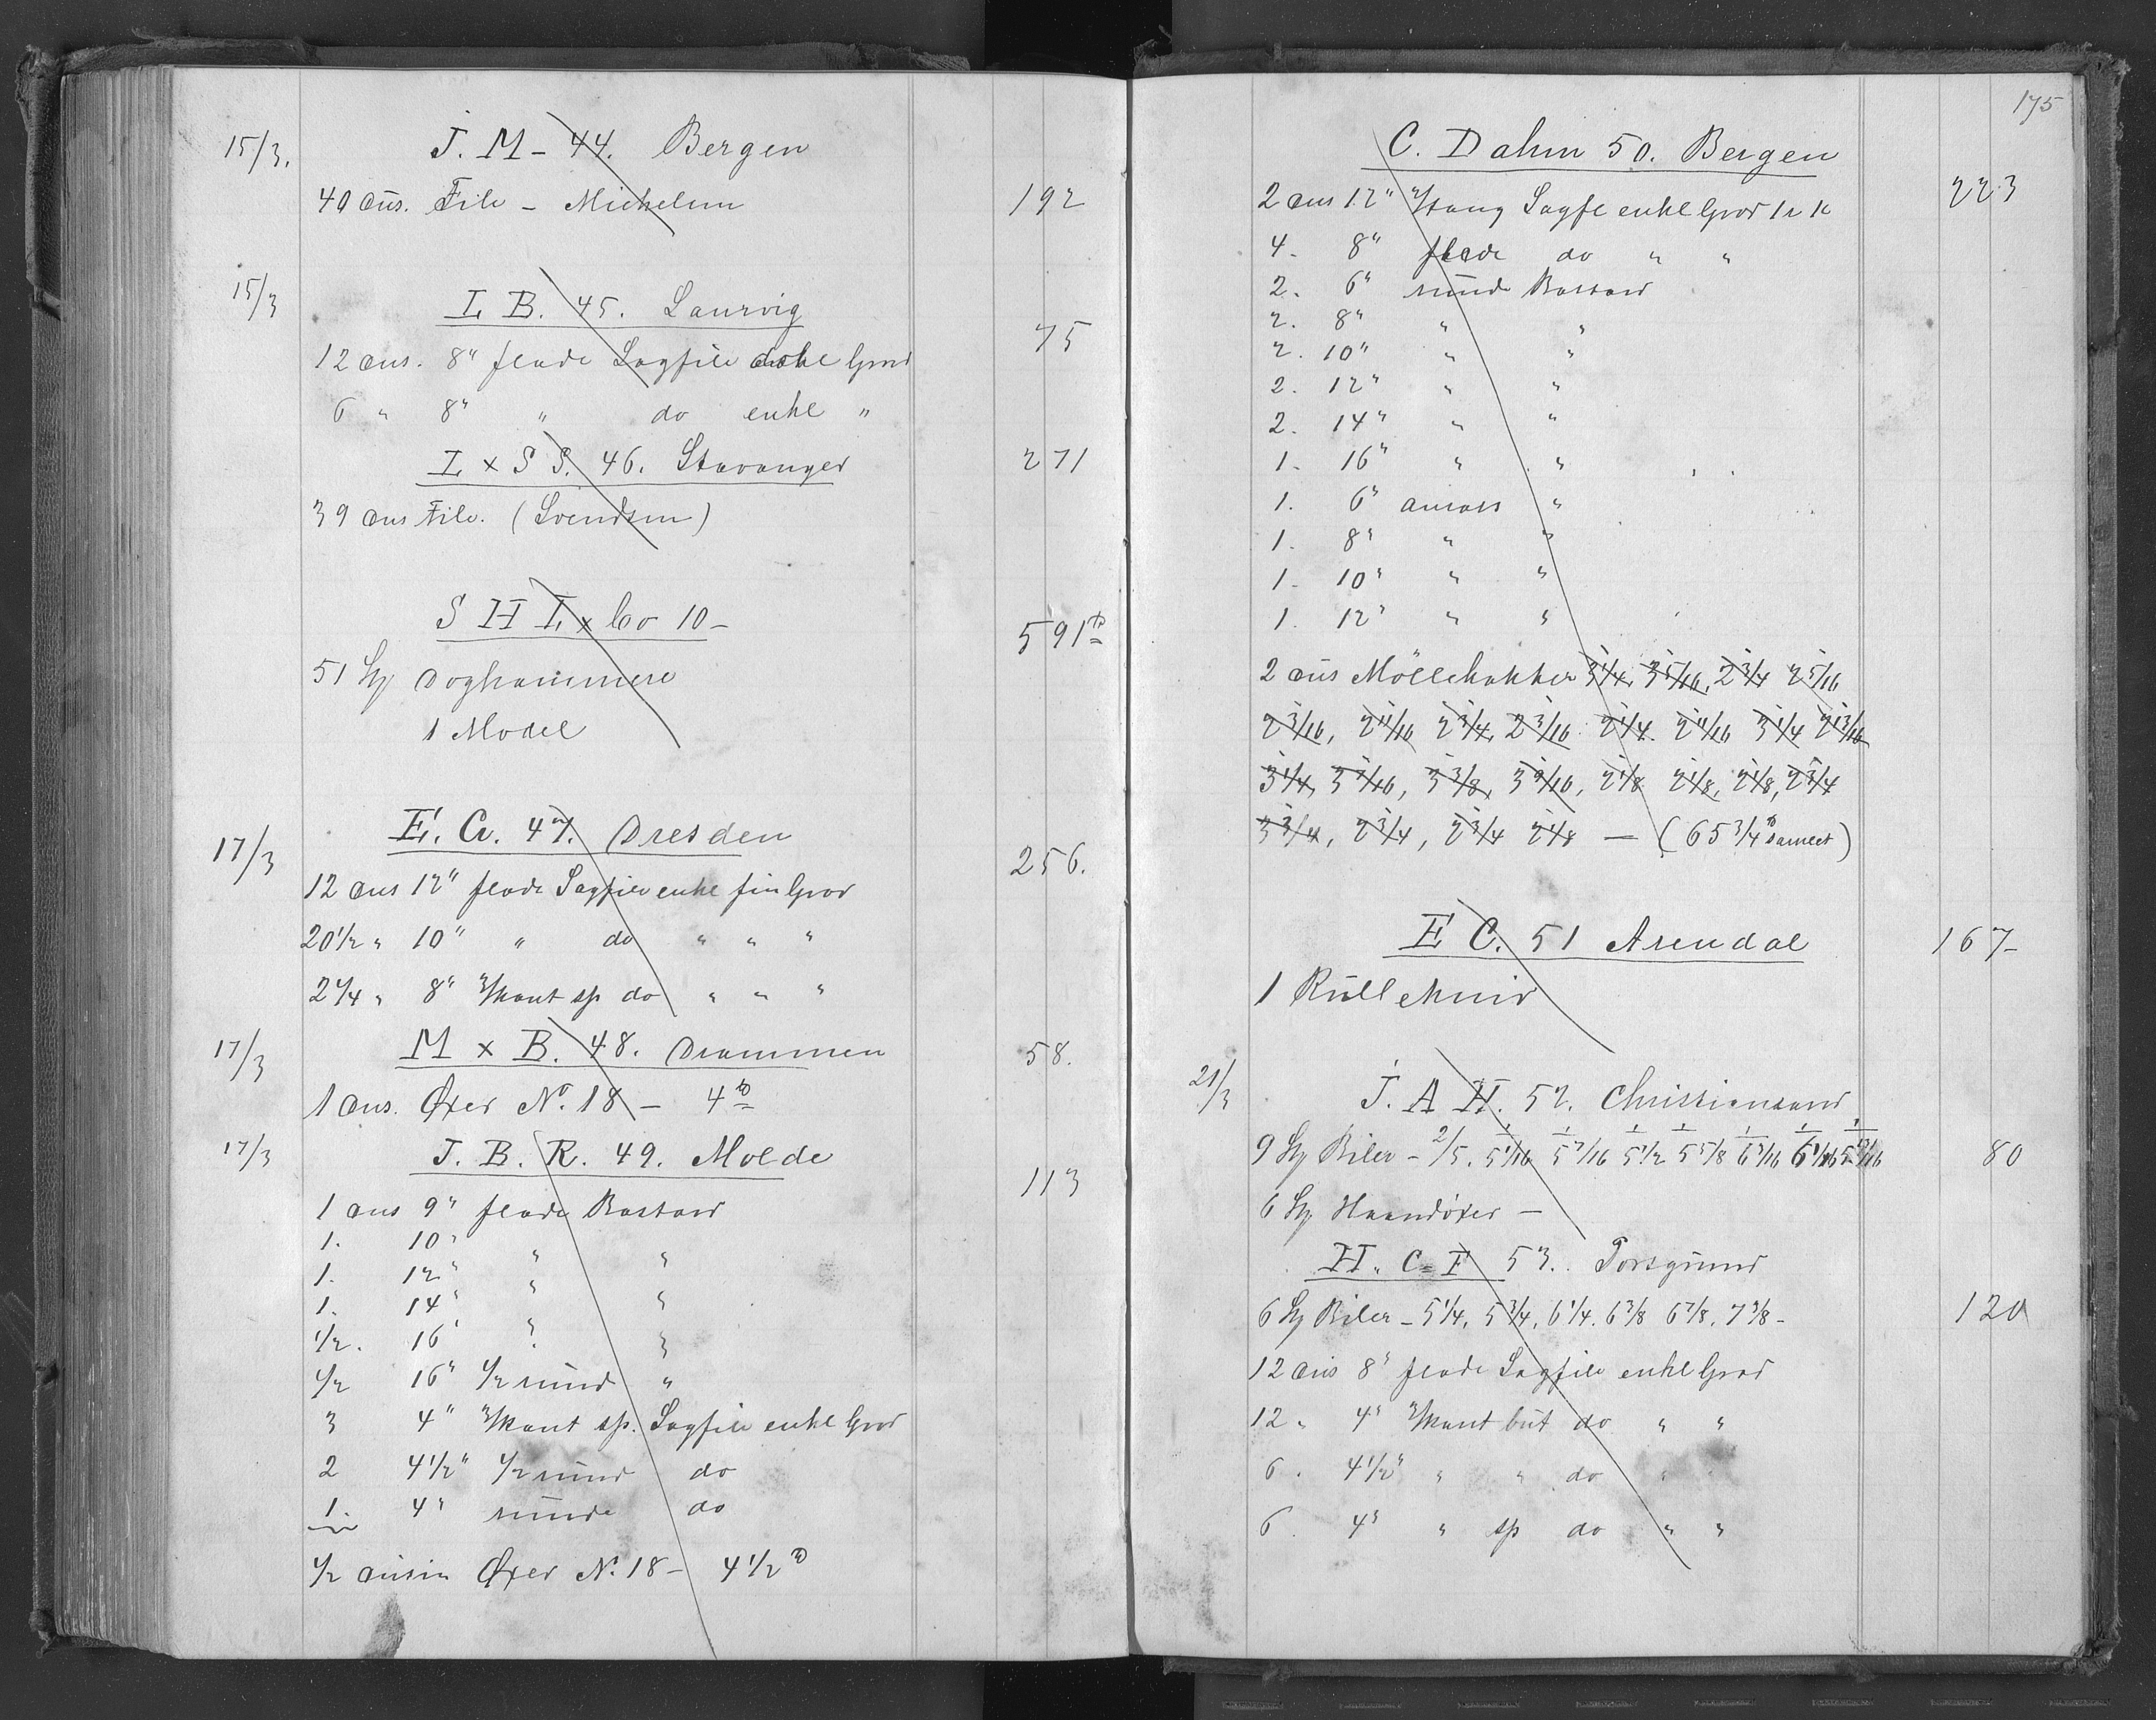 15/3. J. M - 44. Bergen
40 dus. File - Michelsen 192
15/3 I. B. 45. Laurvig
12 dus. 8" flade Sagfile Grad 75
6 " 8" " do enkl "
I x S S. 46. Stavanger 271
39 dus File. (Svendsen)
S H I x Co 10 - 591 ℔
51 St Doghammere
1 Model
17/3 E. A. 47. Dresden
12 dus 12" flade Sagfile enkl fin Grad 256.
20 1/2 " 10" " do " " "
2 1/4 " 8" 3/kant sp do " " "
17/3 M x B. 48. Drammen 58.
1 dus. Øxer No. 18 - 4 ℔
17/3 J. B. R. 49. Molde
1 dus 9" flade Bastard 113
1. 10" " "
1. 12" " "
1. 14" " "
1/2. 16" " "
1/2 16" 1/2 rund "
3 4" 3/kant sp. Sagfile enkl Grad
2 4 1/2" 1/2 rund do
1. 4" runde do
1/2 dusin Øxer N. 18 - 4 1/2 ℔
175
C. Dahm 50. Bergen
2 dus 12" Sagfl enkl Grad 223
4. 8" flade do " "
2. 6" runde Bastard
2. 8" " "
2. 10" " "
2. 12" " "
2. 14" " "
1. 16" " "
1. 6" ansats "
1. 8" " "
1. 10" " "
1. 12" " "
2 dus Möllehakker 3 1/4, 3 5/16, 2 3/4 2 5/16
2 3/16, 2 11/16 2 3/4, 2 3/16 2 1/4. 2 11/16 3 1/4 2 13/16
3 1/4, 3 3/16, 3 3/8, 3 9/16, 2 1/8 2 1/8, 2 1/8, 2 3/4
3 3/4, 2 3/4, 2 3/4 2 1/8 — (65 3/4 ℔ samlet)
E C. 51 Arendal 167-
1 Rullekniv
21/3 J. A H. 52. Christiansand
9 St Biler - 2/5. 5 1/16 5 7/16 5 1/2 5 5/8 6 3/16 6 1/16 5 13/16 80
6 St Haandøxer -
H. C = F 53. Porsgrund
6 St Biler - 5 1/4, 5 3/4, 6 1/4. 6 3/8 6 7/8. 7 3/8 - 120
12 dus 8" flade Sagfile enkl Grad
12 " 4" 3/kant but do " "
6. 4 1/2" " " do " "
6. 4" " sp do " "